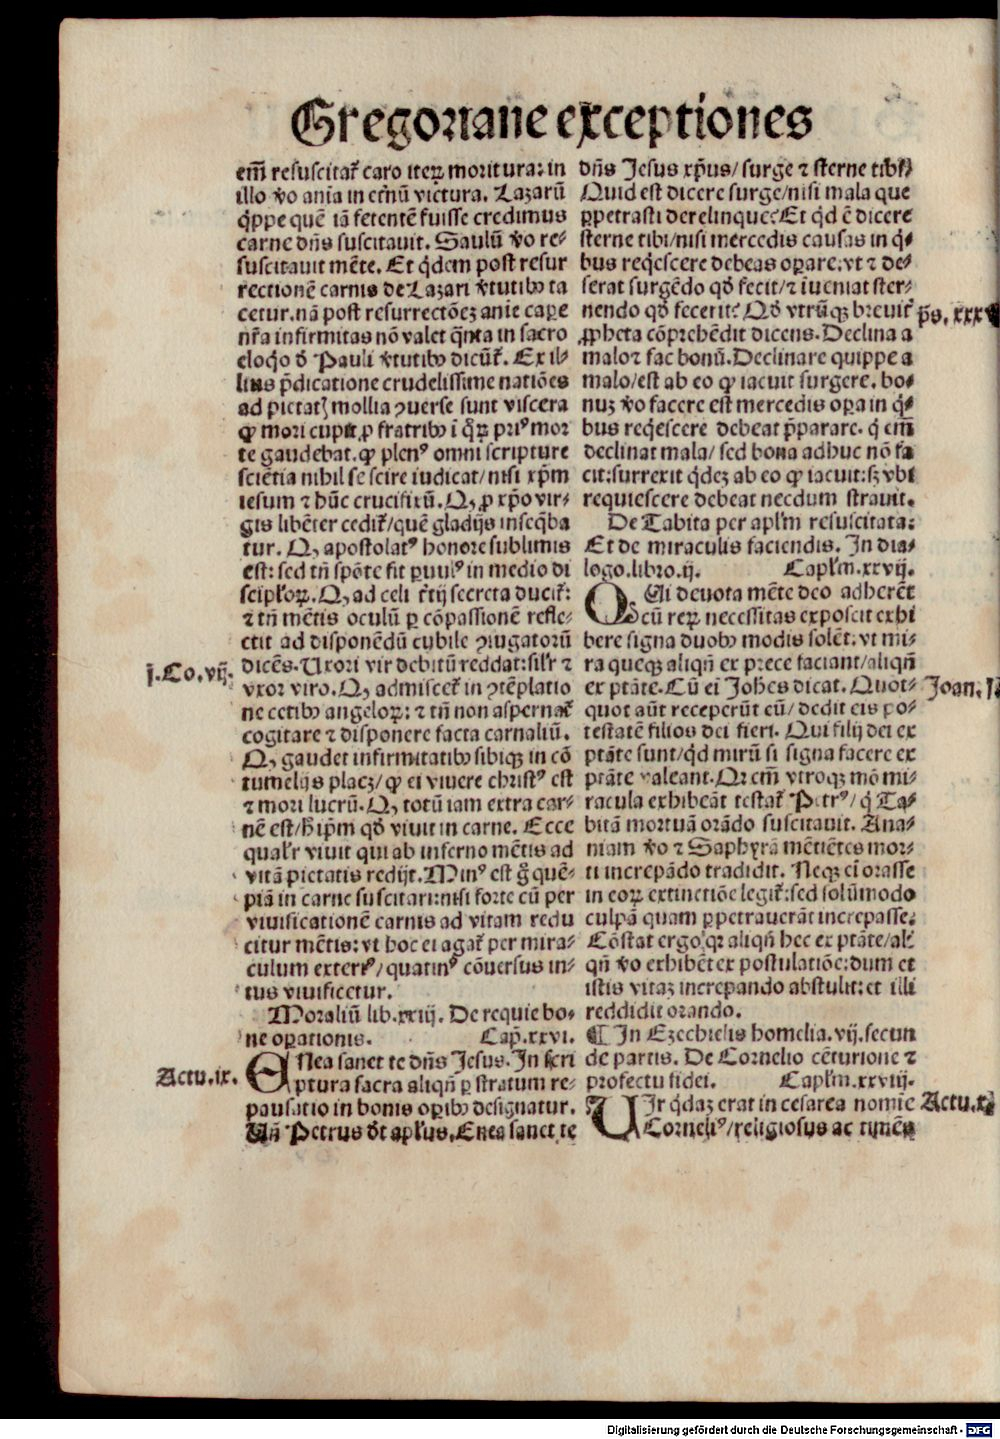 Gregoriane exceptiones
em̄ resuscitat᷑ caro iteꝝ moritura: in
illo v̊o anīa in et̄nū victura. Lazarū
q̇ppe quē iā fetentē fuisse credimus
carne dn̄s suscitauit. Saulū v̊o re⸗
suscitauit mēte. Et q̇dem post resur
rectionē carnis de Lazari v̓tutibꝰ ta
cetur. nā post resurrectōeꝫ anīe capere
nr̄a infirmitas nō valet q̄nta in sacro
eloq̇o ď Pauli v̓tutibꝰ dicūt᷑. Ex il⸗
lius p̄dicatione crudelissime natiōes
ad pietatꝭ mollia ꝯuerse sunt viscera
ꝙ mori cupit ꝓ fratribꝰ ī q̄ꝝ priꝰ mor
te gaudebat. ꝙ plenꝰ omni scripture
sciētia nihil se scire iudicat/nisi xp̄m
iesum ⁊ hūc crucifixū. Qꝫ ꝓ xp̄o vir⸗
gis libēter cedit᷑/quē gladijs inseq̄ba
tur. Qꝫ apostolatꝰ honore sublimis
est: sed tn̄ spōte fit ꝑuulꝰ in medio di
scipl’oꝝ. Qꝫ ad celi t̓tij secreta ducit᷑:
⁊ tn̄ mētis oculū ꝑ cōpassionē refle⸗
ctit ad disponēdū cubile ꝯiugatorū
j. Co. vij.
dicēs. Uxori vir debitū reddat: sil’r ⁊
vxor viro. Qꝫ admiscet᷑ in ꝯtēplatio
ne cetibꝰ angeloꝝ: ⁊ tn̄ non aspernat᷑
cogitare ⁊ disponere facta carnaliū.
Qꝫ gaudet infirmitatibꝰ sibiqꝫ in cō
tumelijs placꝫ/ꝙ ei viuere christꝰ est
⁊ mori lucrū. Qꝫ totū iam extra car⸗
nē est/h̓ ip̄m qď viuit in carne. Ecce
qual’r viuit qui ab inferno mētis ad
vitā pietatis redijt. Minꝰ est g̊ quē⸗
piā in carne suscitari: nisi forte cū per
viuificationē carnis ad vitam redu
citur mētis: vt hoc ei agat᷑ per mira⸗
culum exteriꝰ/quatinꝰ cōuersus in⸗
tus viuificetur.
Moraliū lib. xxiij. De requie bo⸗
ne oꝑationis. Cap̄. xxvi.
Actu. ix.
ENea sanet te dn̄s Jesus. In scri
ptura sacra aliqn̄ ꝑ stratum re⸗
pausatio in bonis oꝑibꝰ designatur.
Vn̄ Petrus ďt apl’us. Enea sanet te
dn̄s Jesus xp̄us/surge ⁊ sterne tibi?
Quid est dicere surge/nisi mala que
ꝑpetrasti derelinque? Et q̇d ē dicere
sterne tibi/nisi mercedis causas in q̇⸗
bus req̇escere debeas oꝑare. vt ⁊ de⸗
serat surgēdo qď fecit/⁊ iueniat ster⸗
nendo qď fecerit? Qď vtrūqꝫ breuit᷑
ps. xxxv
ꝓpheta cōprehēdit dicens. Declina a
malo ⁊ fac bonū. Declinare quippe a
malo/est ab eo ꝙ iacuit surgere. bo⸗
nuꝫ v̊o facere est mercedis oꝑa in q̇⸗
bus req̇escere debeat p̄parare. q̇ em̄
declinat mala/sed bona adhuc nō fa
cit: surrexit q̇deꝫ ab eo ꝙ iacuit: sꝫ vbi
requiescere debeat necdum strauit.
De Tabita per apl’m resuscitata:
Et de miraculis faciendis. In dia⸗
logo. libro. ij. Capl’m. xxvij.
QUi deuota mēte deo adherēt
cū reꝝ necessitas exposcit exhi
bere signa duobꝰ modis solēt: vt mi⸗
ra queqꝫ aliqn̄ ex prece faciant/aliqn̄
ex ptāte. Cū ei Joh̄es dicat. Quot⸗
Joan. j
quot aūt receperūt eū/dedit eis po⸗
testatē filios dei fieri. Qui filij dei ex
ptāte sunt/q̇d mirū si signa facere ex
ptāte valeant. Qr em̄ vtroqꝫ mō mi⸗
racula exhibeāt testat᷑ Petrꝰ/q̇ Ta⸗
bitā mortuā orādo suscitauit. Ana⸗
niam v̊o ⁊ Saphyrā mētiētes mor⸗
ti increpādo tradidit. Neqꝫ ei orasse
in eoꝝ extinctiōe legit᷑: sed solūmodo
culpā quam ꝑpetrauerāt increpasse.
Cōstat ergo qꝛ aliqn̄ hec ex ptāte/ali⸗
qn̄ v̊o exhibēt ex postulatiōe: dum et
istis vitaꝫ increpando abstulit: et illi
reddidit orando.
¶ In Ezechielis homelia. vij. secun
de partis. De Cornelio cēturione ⁊
profectu fidei. Capl’m. xxviij.
VJr q̇daꝫ erat in cesarea nomīe
Actu. x
Corneliꝰ/religiosus ac timēs
Digitalisierung gefördert durch die Deutsche Forschungsgemeinschaft - DFG